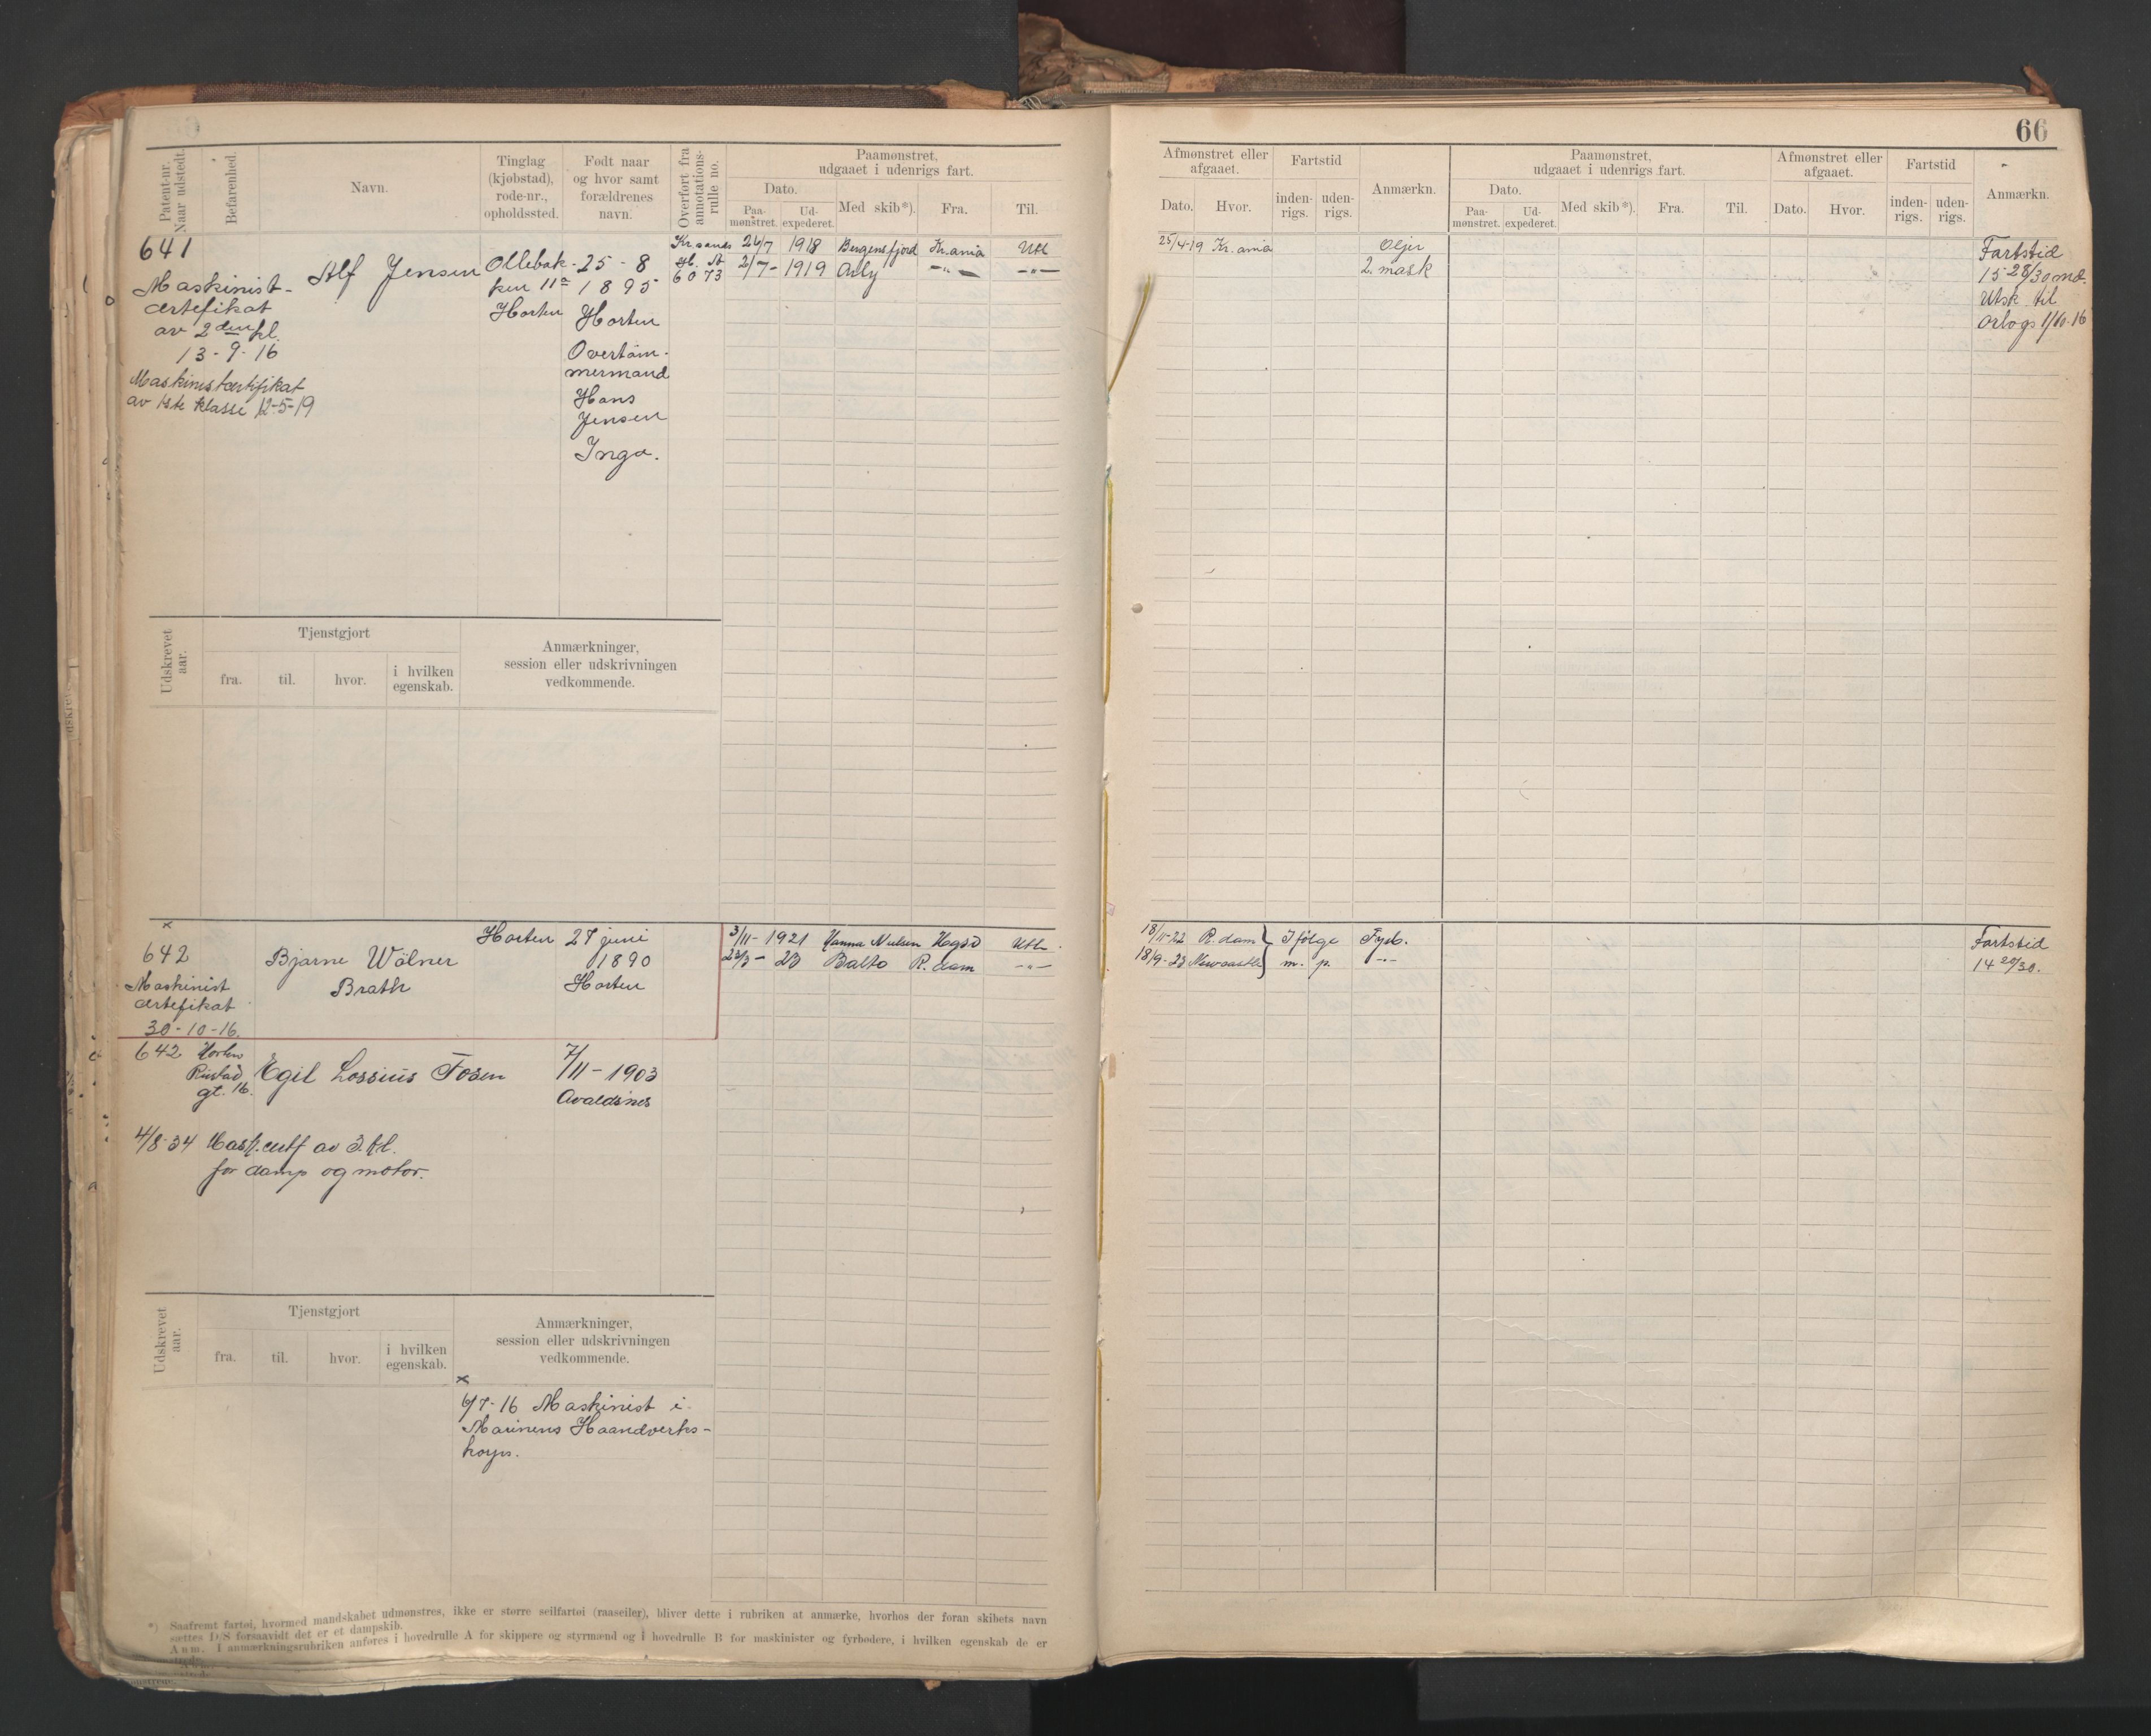 66
Patent-nr. Naar udstedt.
Befarenhed.
Navn.
Tinglag (kjøbstad), rode-nr., opholdssted.
Født naar og hvor samt forældrenes navn.
Overført fra annotations-rulle no.
Paamønstret, udgaaet i udenrigs fart.
Dato.
Paa-mønstret.
Ud-expederet.
Med skib*).
Fra.
Til.
Afmønstret eller afgaaet.
Dato.
Hvor.
Fartstid
inden-rigs.
uden-rigs.
Anmærkn.
Paamønstret, udgaaet i udenrigs fart.
Dato.
Paa-mønstret.
Ud-expederet.
Med skib*).
Fra.
Til.
Afmønstret eller afgaaet.
Dato.
Hvor.
Fartstid
inden-rigs.
uden-rigs.
Anmærkn.
641
Maskinist-
certefikat
av 2den kl.
13-9-16
Maskinistcertifikat
av 1ste klasse 12-5-19
Alf Jensen
Ollebak-
ken 11
Horten
25-8
1895
Horten
Overtøm-
mermand
Hans
Jensen
Inga.
Kr.sands
6073
24/7 1918 Bergensfjord Kr.ania Utl
2/7-1919 -"- -"-
25/4-19 Kr.ania Oljer
2. mask
Fartstid
15 28/30 md.
Utsk til
orlogs 1/10-16
Udskrevet aar.
Tjenstgjort
fra.
til.
hvor.
i hvilken egenskab.
Anmærkninger, session eller udskrivningen vedkommende.
x
642
Maskinist
certefikat
30-10-16.
Bjarne Wølner
Brath
Horten
27 juni
1890
Horten
3/11-1921 Hanna Nielsen Utl.
23/3-23 Balto R.dam -"-
18/11-22 R.dam } Ifølge Fyrb.
18/9-23 Newcastle } m. p. -"-
Fartstid
14 20/30.
642 Horten
Rustad
gt. 16.
Egil Lossius Fosen
7/11-1903
Avaldsnes
4/8-34 Mask.certf av 3.kl.
for damp og motor.
Udskrevet aar.
Tjenstgjort
fra.
til.
hvor.
i hvilken egenskab.
Anmærkninger, session eller udskrivningen vedkommende.
x
6/7-16 Maskinist i
Marinens Haandverks-
korps.
*) Saafremt fartøi, hvormed mandskabet udmønstres, ikke er større seilfartøi (raaseiler), bliver dette i rubriken at anmærke, hvorhos der foran skibets navn
sættes D/S forsaavidt det er et dampskib.
Anm. I anmærkningsrubriken anføres i hovedrulle A for skippere og styrmænd og i hovedrulle B for maskinister og fyrbødere, i hvilken egenskab de er